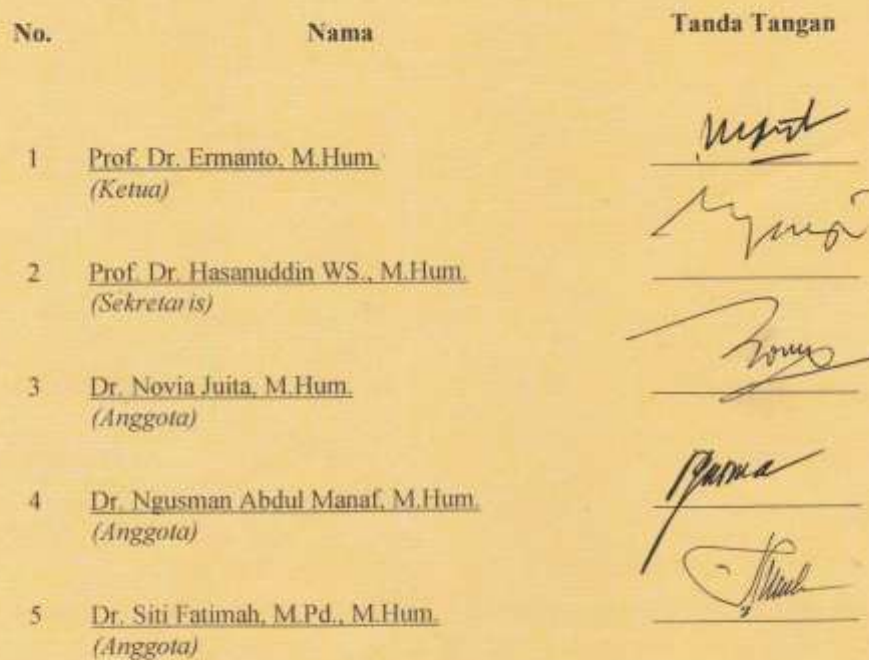 No. Nama Tanda Tangan
1 Prof. Dr. Ermanto, M.Hum.
(Ketua)
2 Prof. Dr. Hasanuddin WS., M.Hum.
(Sekretaris)
3 Dr. Novia Juita, M.Hum.
(Anggota)
4 Dr. Ngusman Abdul Manaf, M.Hum.
(Anggota)
5 Dr. Siti Fatimah, M.Pd., M.Hum.
(Anggota)